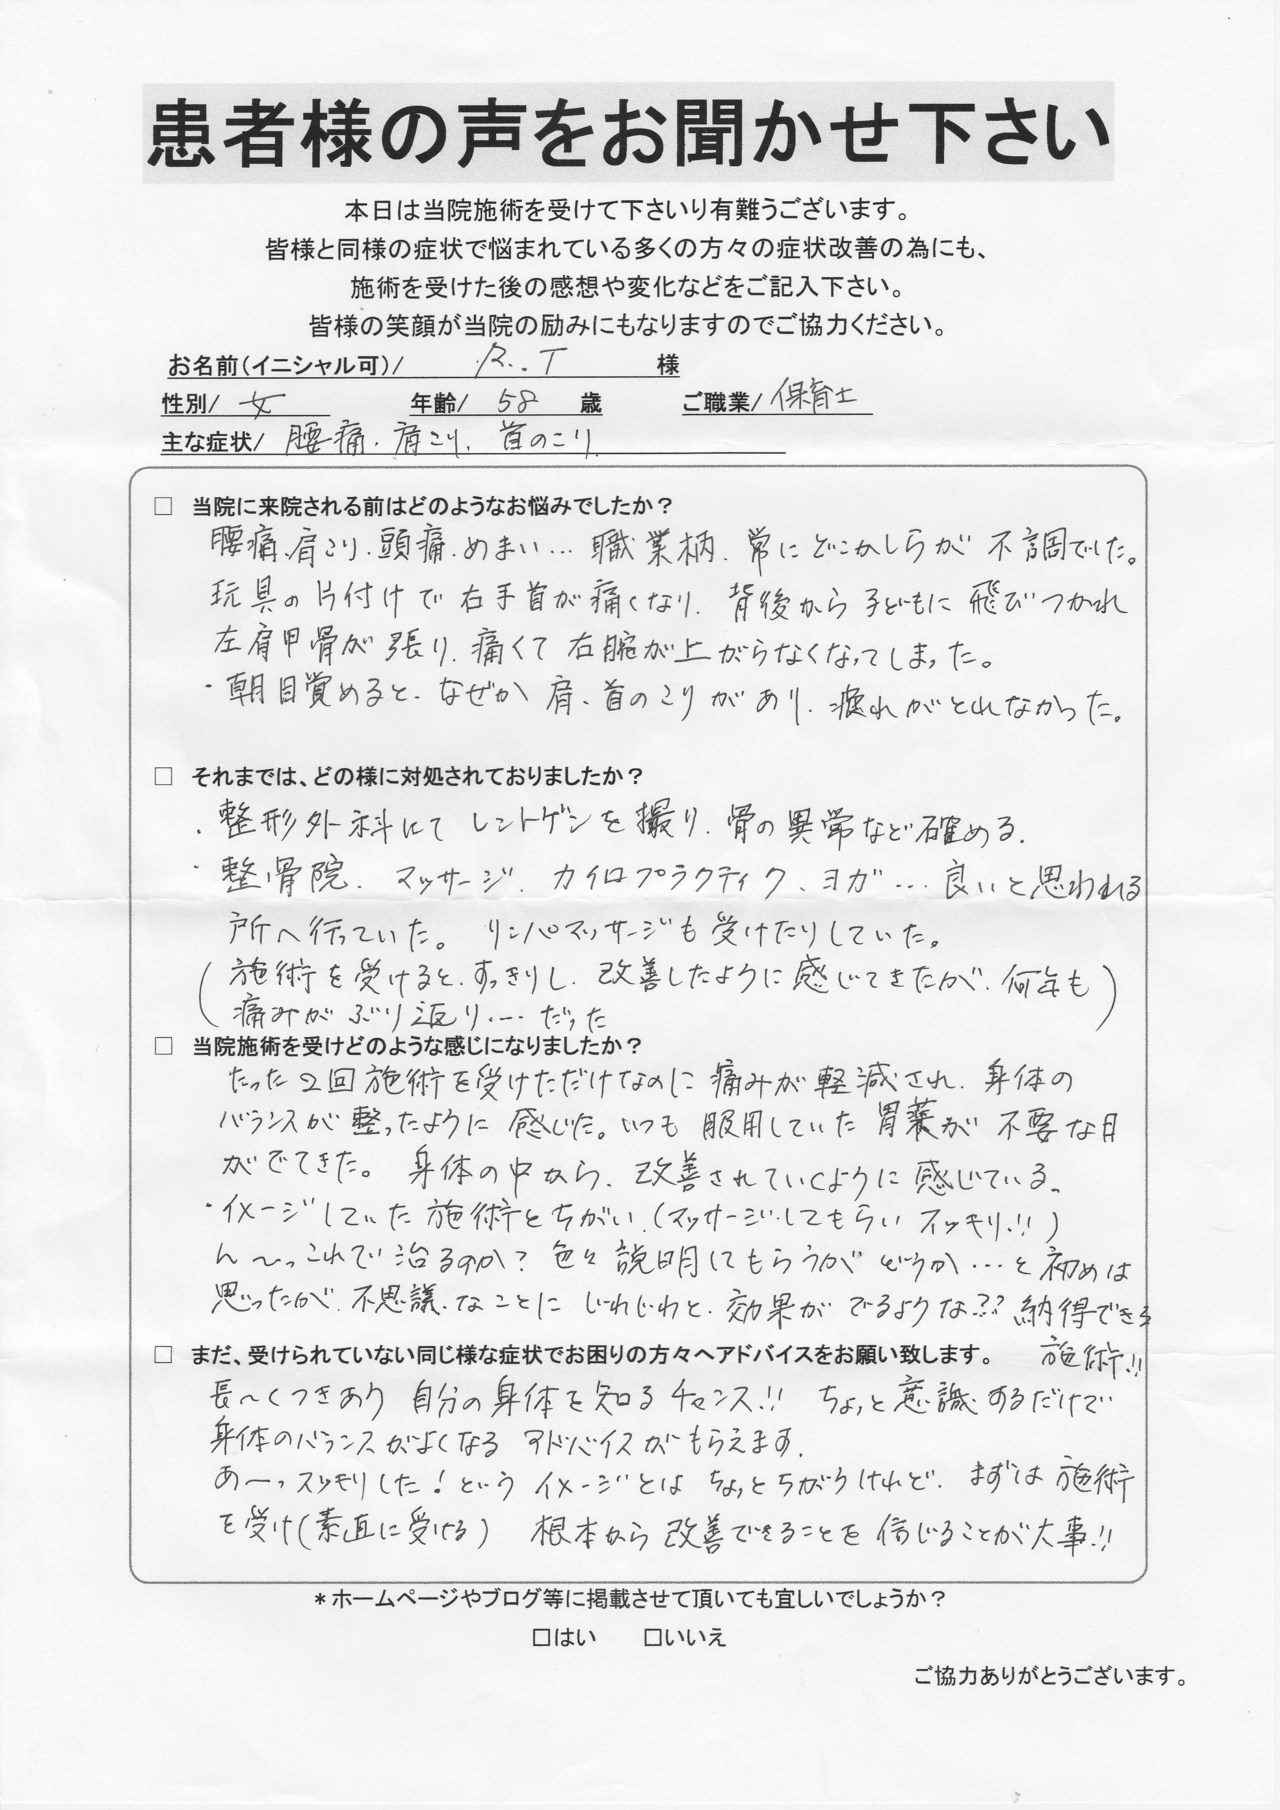 患者様の声をお聞かせ下さい
本日は当院施術を受けて下さいり有難うございます。
皆様と同様の症状で悩まれている多くの方々の症状改善の為にも、
施術を受けた後の感想や変化などをご記入下さい。
皆様の笑顔が当院の励みにもなりますのでご協力ください。
お名前(イニシャル可)/ R.T 様
性別/ 女 年齢/ 58 歳 ご職業/ 保育士
主な症状/ 腰痛、肩こり、首のこり
□ 当院に来院される前はどのようなお悩みでしたか?
腰痛、肩こり、頭痛、めまい… 職業柄、常にどこかしらが不調でした。
玩具の片付けで右手首が痛くなり、背後から子どもに飛びつかれ
左肩甲骨が張り、痛くて右腕が上がらなくなってしまった。
・朝目覚めると、なぜか肩、首のこりがあり、疲れがとれなかった。
□ それまでは、どの様に対処されておりましたか?
・整形外科にてレントゲンを撮り、骨の異常など確める。
・整骨院、マッサージ、カイロプラクティク、ヨガ… 良いと思われる
所へ行っていた。リンパマッサージも受けたりしていた。
(施術を受けると、すっきりし、改善したように感じてきたが、何年も
痛みがぶり返り…だった)
□ 当院施術を受けどのような感じになりましたか?
たった2回施術を受けただけなのに痛みが軽減され、身体の
バランスが整ったように感じた。いつも服用していた胃薬が不要な日
がでてきた。身体の中から、改善されていくように感じている。
・イメージしていた施術とちがい、(マッサージしてもらいスッキリ!!)
ん〜っこれで治るのか?色々説明してもらうがどうか…と初めは
思ったが、不思議なことにじわじわと、効果がでるような?? 納得できる
施術!!
□ まだ、受けられていない同じ様な症状でお困りの方々へアドバイスをお願い致します。
長〜くつきあう自分の身体を知るチャンス!! ちょっと意識するだけで
身体のバランスがよくなるアドバイスがもらえます。
あ〜っスッキリした!というイメージとはちょっとちがうけれど、まずは施術
を受け(素直に受ける) 根本から改善できることを信じることが大事!!
*ホームページやブログ等に掲載させて頂いても宜しいでしょうか?
□はい □いいえ
ご協力ありがとうございます。